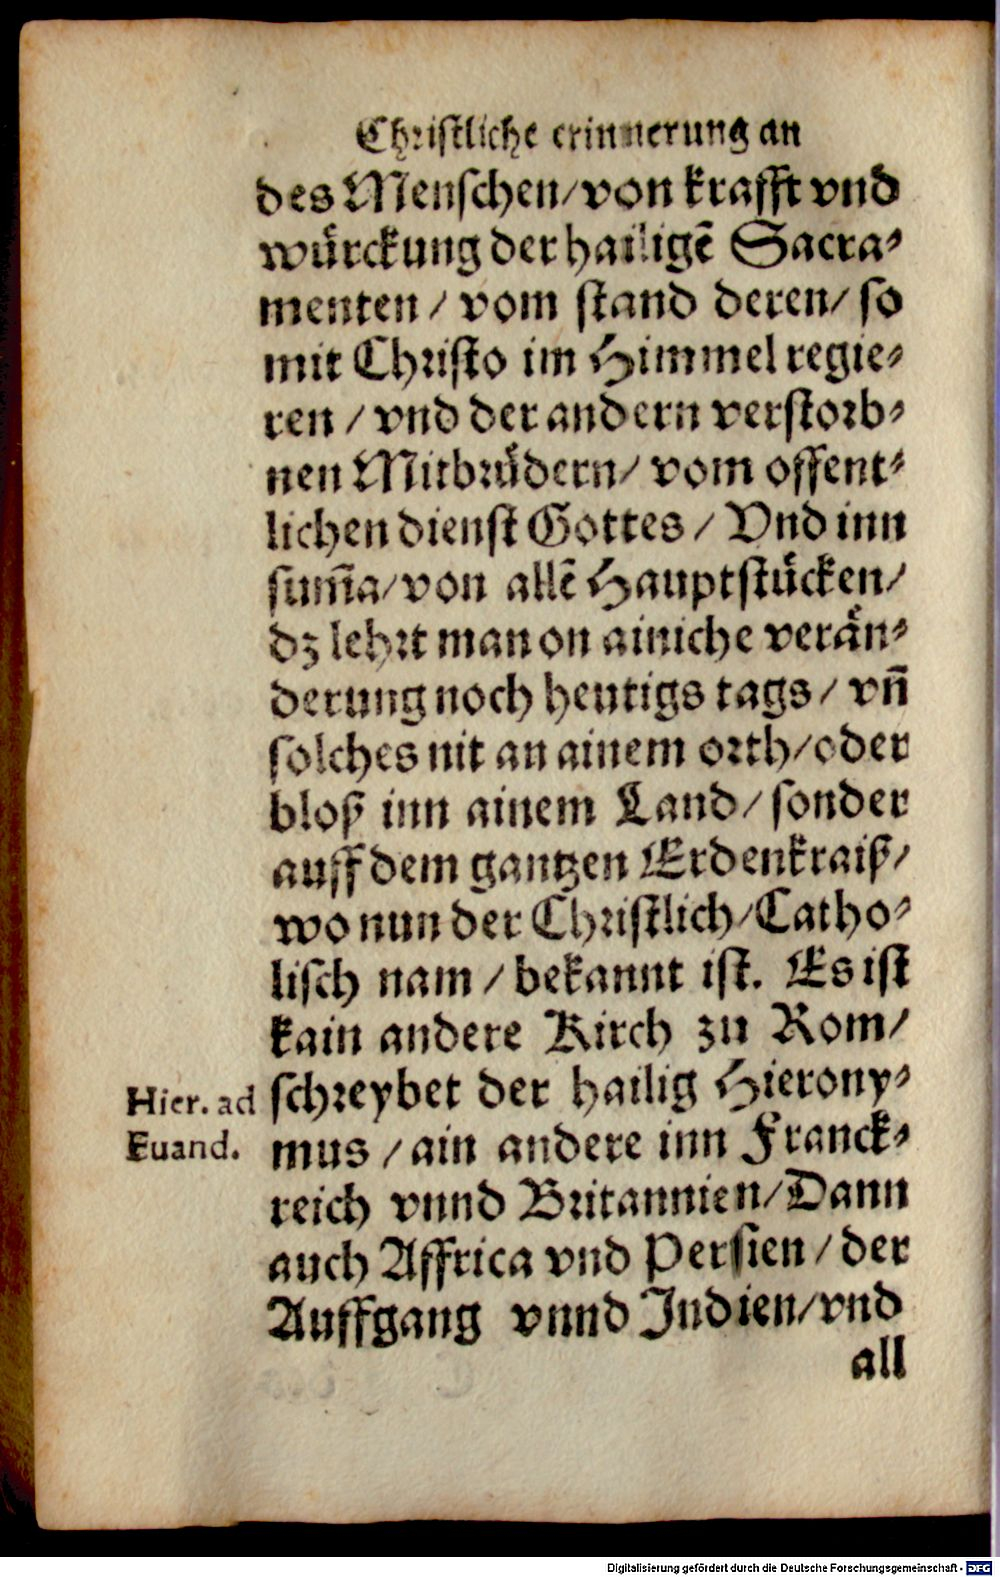 Christliche erinnerung an
des Menschen/ von krafft vnd
würckung der hailigẽ Sacra-
menten / vom stand deren/ so
mit Christo im Himmel regie-
ren / vnd der andern verstorb-
nen Mitbrüdern/ vom offent-
lichen dienst Gottes / Vnd inn
sum̃a/ von allẽ Hauptstücken/
dz lehrt man on ainiche verän-
derung noch heutigs tags / vñ
solches nit an ainem orth/ oder
bloß inn ainem Land/ sonder
auff dem gantzen Erdenkraiß/
wo nun der Christlich/ Catho-
lisch nam / bekannt ist. Es ist
kain andere Kirch zu Rom/
Hier. ad schreybet der hailig Hierony-
Euand. mus / ain andere inn Franck-
reich vnnd Britannien/ Dann
auch Affrica vnd Persien / der
Auffgang vnnd Indien/ vnd
all
Digitalisierung gefördert durch die Deutsche Forschungsgemeinschaft - DFG